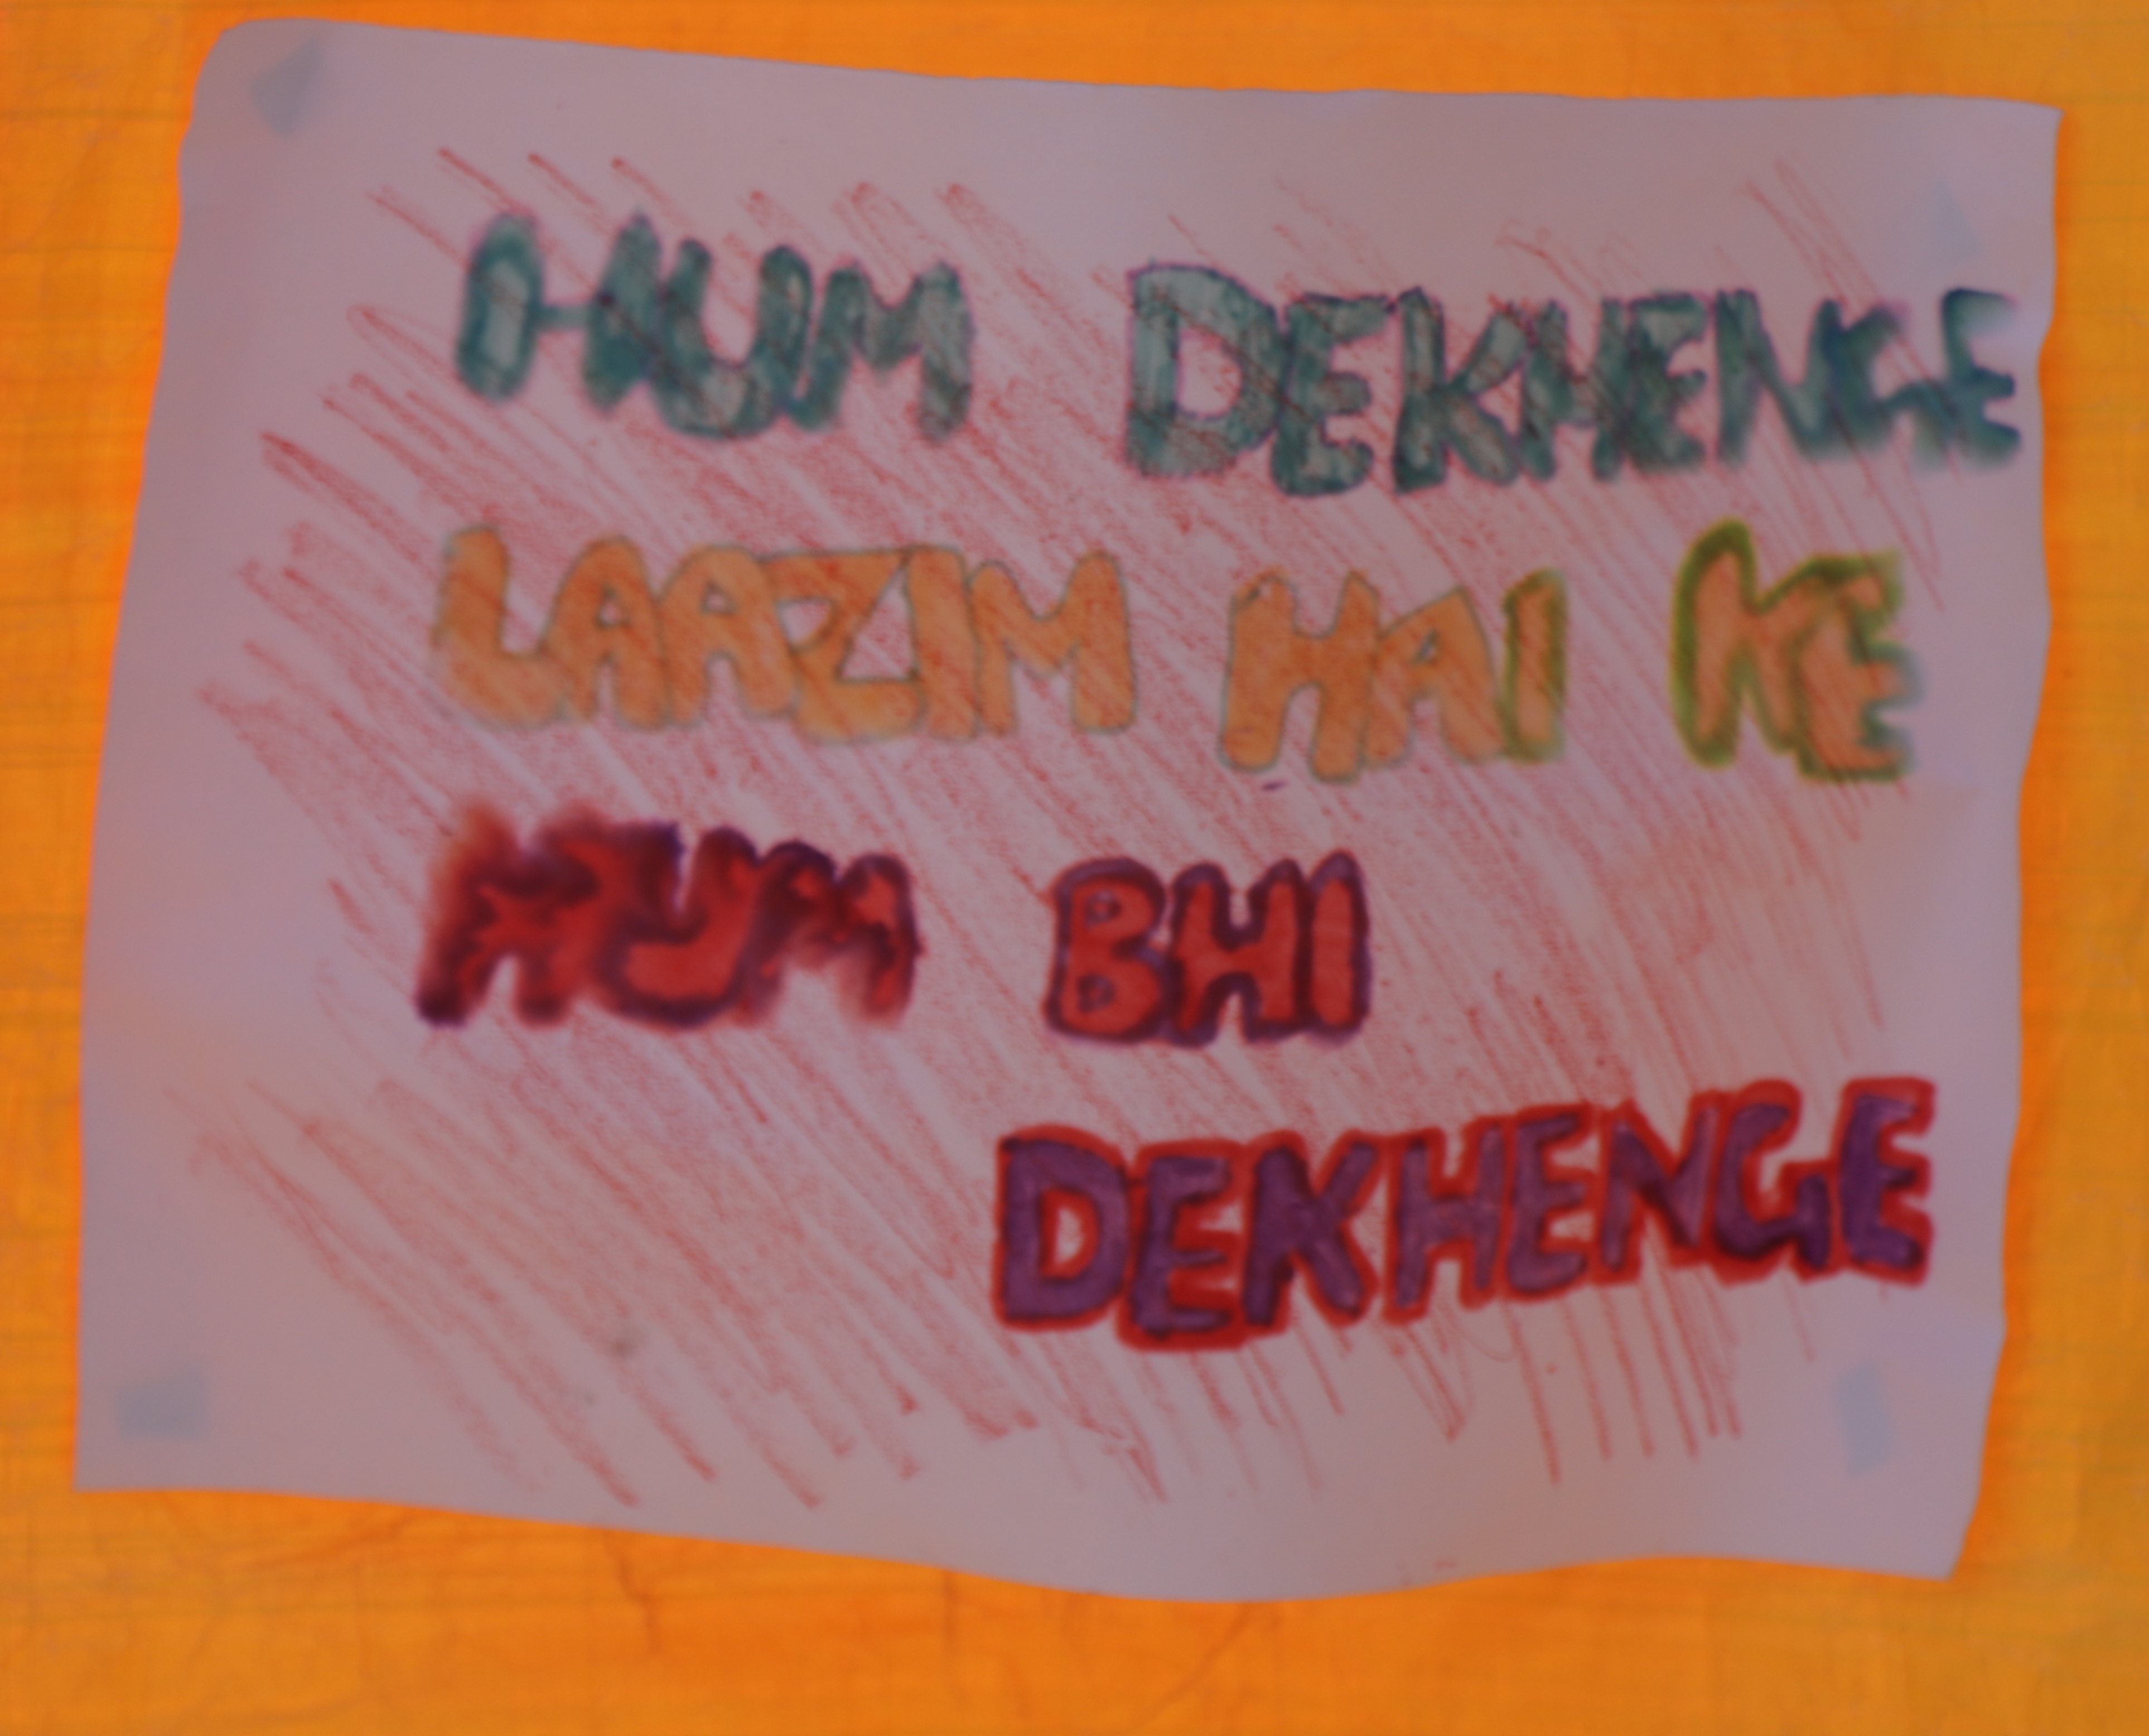 HUM DEKHENGE
LAAZIM HAI KE
HUM BHI
DEKHENGE